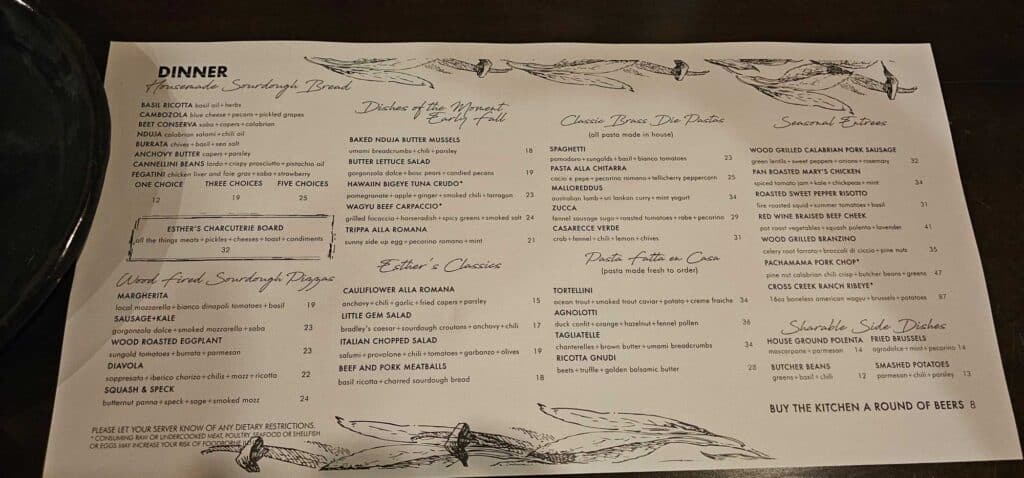 DINNER
Housemade Sourdough Bread
BASIL RICOTTA basil oil+herbs
CAMBOZOLA blue cheese+pecans+pickled grapes
BEET CONSERVA saba+capers+calabrian
NDUJA calabrian salami+chili oil
BURRATA chives+basil+sea salt
ANCHOVY BUTTER capers+parsley
CANNELLINI BEANS lardo+crispy prosciutto+pistachio oil
FEGATINI chicken liver and foie gras+saba+strawberry
ONE CHOICE THREE CHOICES FIVE CHOICES
12 19 25
ESTHER'S CHARCUTERIE BOARD
all the things meats+pickles+cheeses+toast+condiments
32
Wood Fired Sourdough Pizzas
MARGHERITA
local mozzarella+bianco dinapoli tomatoes+basil 19
SAUSAGE+KALE
gorgonzola dolce+smoked mozzarella+saba 23
WOOD ROASTED EGGPLANT
sungold tomatoes+burrata+parmesan 23
DIAVOLA
soppresata+iberico chorizo+chilis+mozz+ricotta 22
SQUASH & SPECK
butternut panna+speck+sage+smoked mozz 24
PLEASE LET YOUR SERVER KNOW OF ANY DIETARY RESTRICTIONS.
* CONSUMING RAW OR UNDERCOOKED MEAT, POULTRY, SEAFOOD OR SHELLFISH
OR EGGS MAY INCREASE YOUR RISK OF FOODBORNE
Dishes of the Moment
Early Fall
BAKED NDUJA BUTTER MUSSELS
umami breadcrumbs+chili+parsley 18
BUTTER LETTUCE SALAD
gorgonzola dolce+bosc pears+candied pecans 19
HAWAIIN BIGEYE TUNA CRUDO*
pomegranate+apple+ginger+smoked chili+tarragon 23
WAGYU BEEF CARPACCIO*
grilled focaccia+horseradish+spicy greens+smoked salt 24
TRIPPA ALLA ROMANA
sunny side up egg+pecorino romano+mint 21
Esther's Classics
CAULIFLOWER ALLA ROMANA
anchovy+chili+garlic+fried capers+parsley 15
LITTLE GEM SALAD
bradley's caesar+sourdough croutons+anchovy+chili 17
ITALIAN CHOPPED SALAD
salumi+provolone+chili+tomatoes+garbanzo+olives 19
BEEF AND PORK MEATBALLS
basil ricotta+charred sourdough bread 18
Classic Brass Die Pastas
(all pasta made in house)
SPAGHETTI
pomodoro+sungolds+basil+bianco tomatoes 23
PASTA ALLA CHITARRA
cacio e pepe+pecorino romano+tellicherry peppercorn 25
MALLOREDDUS
australian lamb+sri lankan curry+mint yogurt 34
ZUCCA
fennel sausage sugo+roasted tomatoes+rabe+pecorino 29
CASARECCE VERDE
crab+fennel+chili+lemon+chives 31
Pasta Fatta en Casa
(pasta made fresh to order)
TORTELLINI
ocean trout+smoked trout caviar+potato+creme fraiche 34
AGNOLOTTI
duck confit+orange+hazelnut+fennel pollen 36
TAGLIATELLE
chanterelles+brown butter+umami breadcrumbs 34
RICOTTA GNUDI
beets+truffle+golden balsamic butter 28
Seasonal Entrees
WOOD GRILLED CALABRIAN PORK SAUSAGE
green lentils+sweet peppers+onions+rosemary 32
PAN ROASTED MARY'S CHICKEN
spiced tomato jam+kale+chickpeas+mint 34
ROASTED SWEET PEPPER RISOTTO
fire roasted squid+summer tomatoes+basil 31
RED WINE BRAISED BEEF CHEEK
pot roast vegetables+squash polenta+lavender 41
WOOD GRILLED BRANZINO
celery root farroto+broccoli di ciccio+pine nuts 35
PACHAMAMA PORK CHOP*
pine nut calabrian chili crisp+butcher beans+greens 47
CROSS CREEK RANCH RIBEYE*
16oz boneless american wagyu+brussels+potatoes 87
Sharable Side Dishes
HOUSE GROUND POLENTA FRIED BRUSSELS
mascarpone+parmesan 14 agrodolce+mint+pecorino 14
BUTCHER BEANS SMASHED POTATOES
greens+basil+chili 12 parmesan+chili+parsley 13
BUY THE KITCHEN A ROUND OF BEERS 8